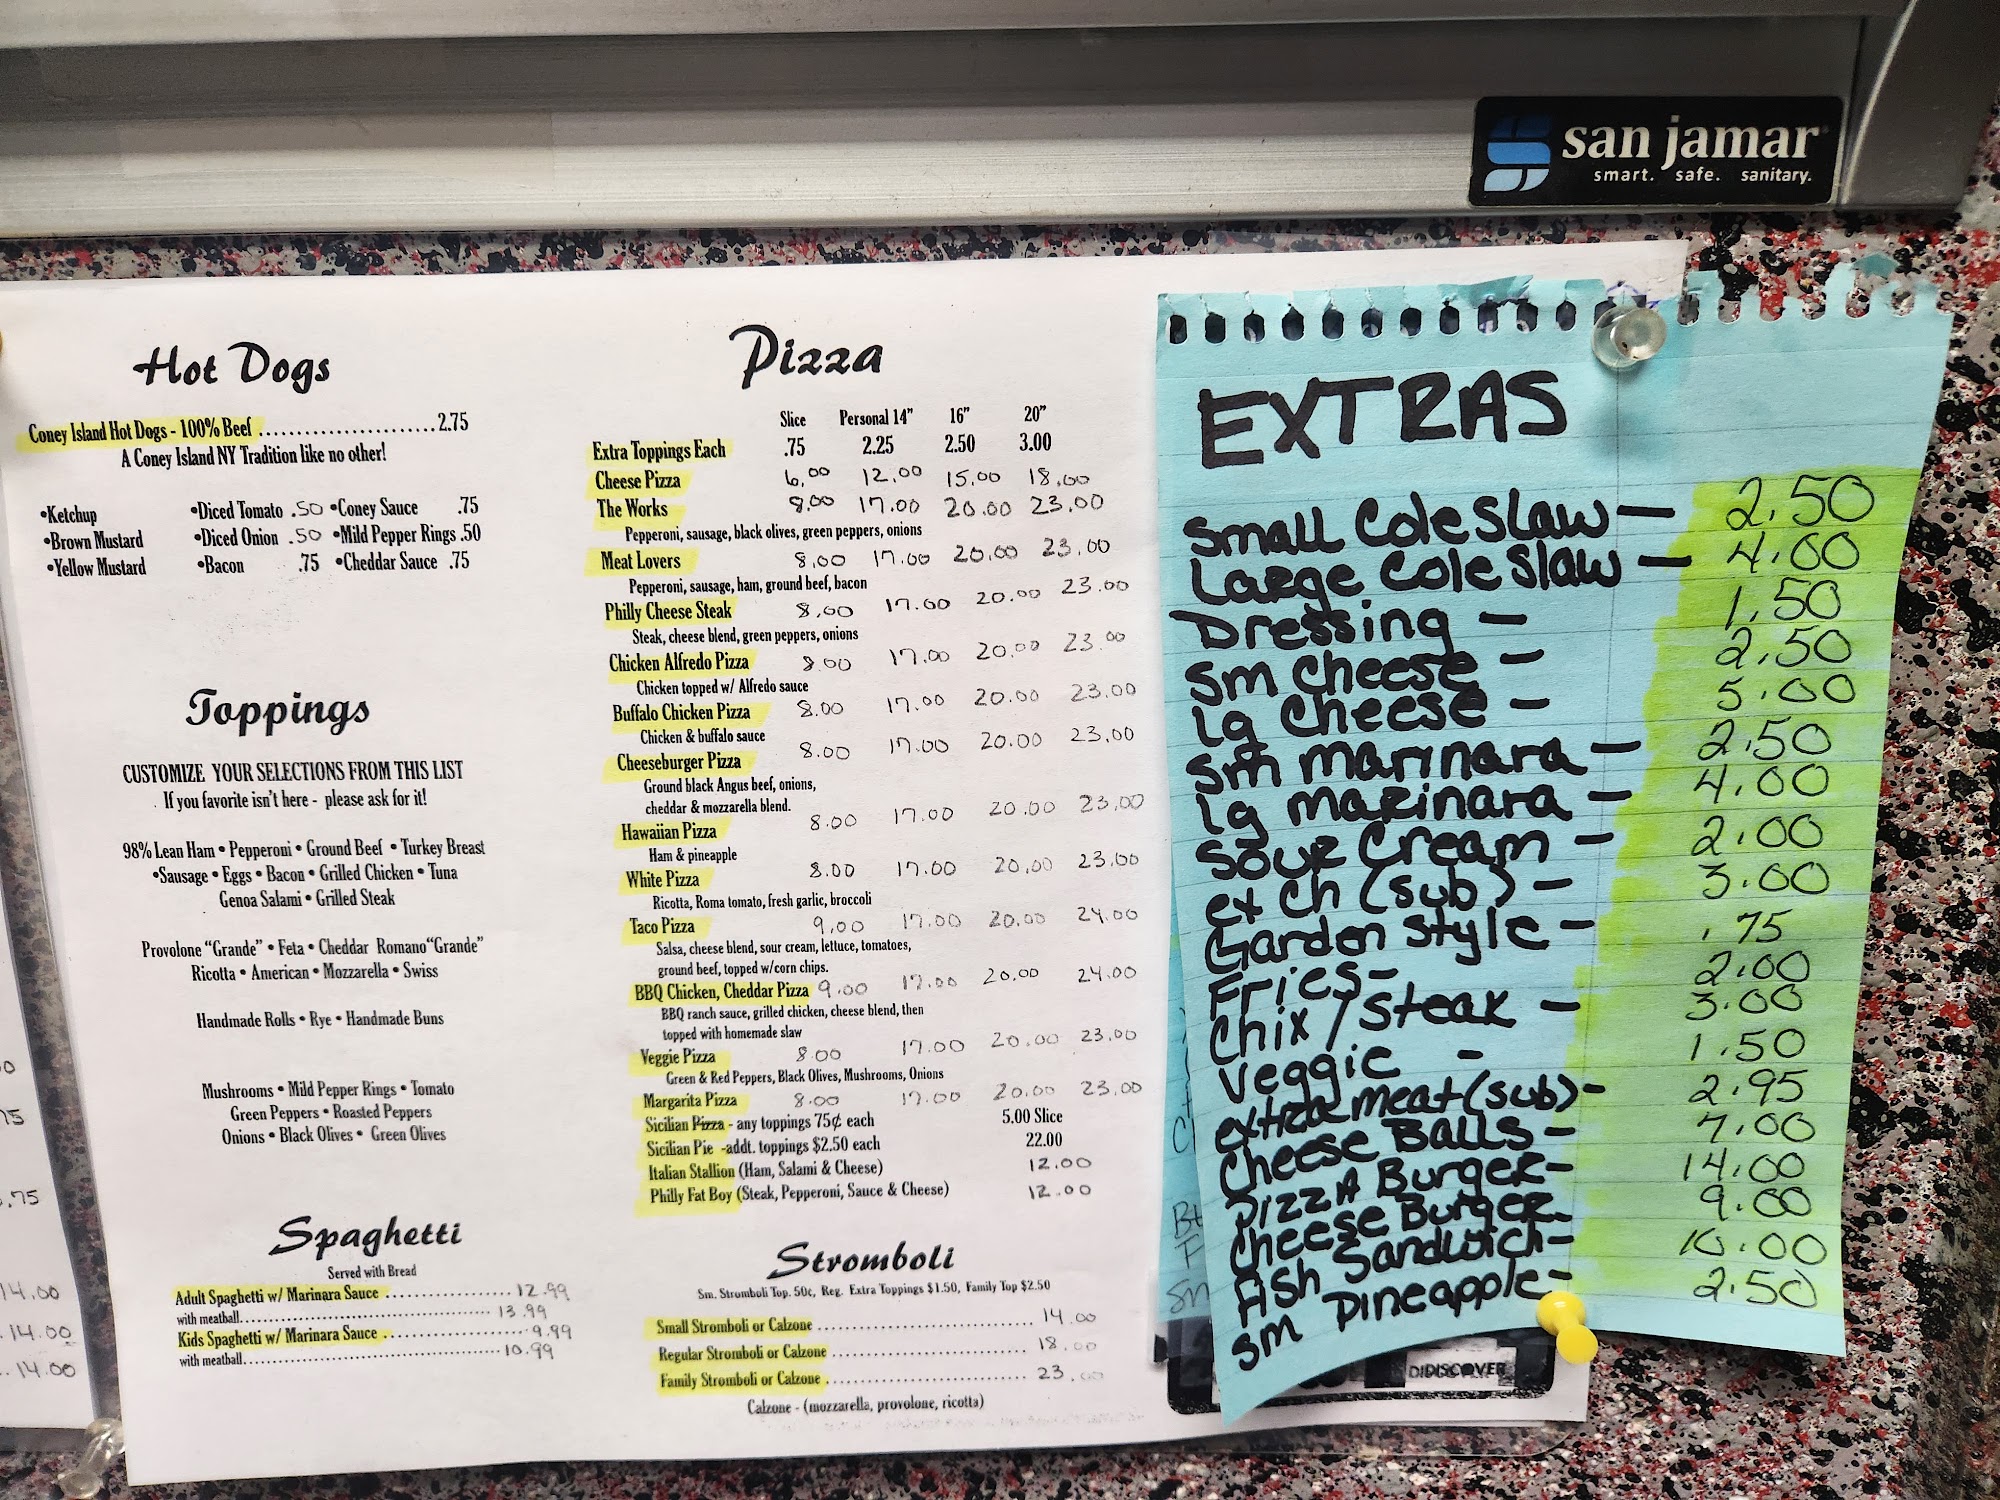 san jamar
smart. safe. sanitary.
Hot Dogs
Coney Island Hot Dogs - 100% Beef ......................2.75
A Coney Island NY Tradition like no other!
•Ketchup •Diced Tomato .50 •Coney Sauce .75
•Brown Mustard •Diced Onion .50 •Mild Pepper Rings .50
•Yellow Mustard •Bacon .75 •Cheddar Sauce .75
Toppings
CUSTOMIZE YOUR SELECTIONS FROM THIS LIST
If you favorite isn't here - please ask for it!
98% Lean Ham • Pepperoni • Ground Beef • Turkey Breast
•Sausage • Eggs • Bacon • Grilled Chicken • Tuna
Genoa Salami • Grilled Steak
Provolone "Grande" • Feta • Cheddar Romano"Grande"
Ricotta • American • Mozzarella • Swiss
Handmade Rolls • Rye • Handmade Buns
Mushrooms • Mild Pepper Rings • Tomato
Green Peppers • Roasted Peppers
Onions • Black Olives • Green Olives
Spaghetti
Served with Bread
Adult Spaghetti w/ Marinara Sauce ......................12.99
with meatball...........................................13.99
Kids Spaghetti w/ Marinara Sauce ........................9.99
with meatball...........................................10.99
Pizza
Slice Personal 14" 16" 20"
Extra Toppings Each .75 2.25 2.50 3.00
Cheese Pizza 6.00 12.00 15.00 18.00
The Works 8.00 17.00 20.00 23.00
Pepperoni, sausage, black olives, green peppers, onions
Meat Lovers 8.00 17.00 20.00 23.00
Pepperoni, sausage, ham, ground beef, bacon
Philly Cheese Steak 8.00 17.00 20.00 23.00
Steak, cheese blend, green peppers, onions
Chicken Alfredo Pizza 8.00 17.00 20.00 23.00
Chicken topped w/ Alfredo sauce
Buffalo Chicken Pizza 8.00 17.00 20.00 23.00
Chicken & buffalo sauce
Cheeseburger Pizza 8.00 17.00 20.00 23.00
Ground black Angus beef, onions,
cheddar & mozzarella blend.
Hawaiian Pizza 8.00 17.00 20.00 23.00
Ham & pineapple
White Pizza 8.00 17.00 20.00 23.00
Ricotta, Roma tomato, fresh garlic, broccoli
Taco Pizza 9.00 17.00 20.00 24.00
Salsa, cheese blend, sour cream, lettuce, tomatoes,
ground beef, topped w/corn chips.
BBQ Chicken, Cheddar Pizza 9.00 17.00 20.00 24.00
BBQ ranch sauce, grilled chicken, cheese blend, then
topped with homemade slaw
Veggie Pizza 8.00 17.00 20.00 23.00
Green & Red Peppers, Black Olives, Mushrooms, Onions
Margarita Pizza 8.00 17.00 20.00 23.00
Sicilian Pizza - any toppings 75¢ each 5.00 Slice
Sicilian Pie -addt. toppings $2.50 each 22.00
Italian Stallion (Ham, Salami & Cheese) 12.00
Philly Fat Boy (Steak, Pepperoni, Sauce & Cheese) 12.00
Stromboli
Sm. Stromboli Top. 50¢, Reg. Extra Toppings $1.50, Family Top $2.50
Small Stromboli or Calzone ......................... 14.00
Regular Stromboli or Calzone ....................... 18.00
Family Stromboli or Calzone ........................ 23.00
Calzone - (mozzarella, provolone, ricotta)
EXTRAS
Small Cole Slaw — 2.50
Large Cole Slaw — 4.00
Dressing — 1.50
Sm Cheese — 2.50
Lg Cheese — 5.00
Sm marinara — 2.50
Lg marinara — 4.00
Sour Cream — 2.00
ex Ch (sub) — 3.00
Garden Style — .75
Fries — 2.00
Chix / Steak — 3.00
Veggie — 1.50
extra meat (sub) — 2.95
Cheese Balls — 7.00
Pizza Burger — 14.00
Cheese Burger — 9.00
Fish Sandwich — 10.00
Sm Pineapple — 2.50
DISCOVER
14.00
14.00
14.00